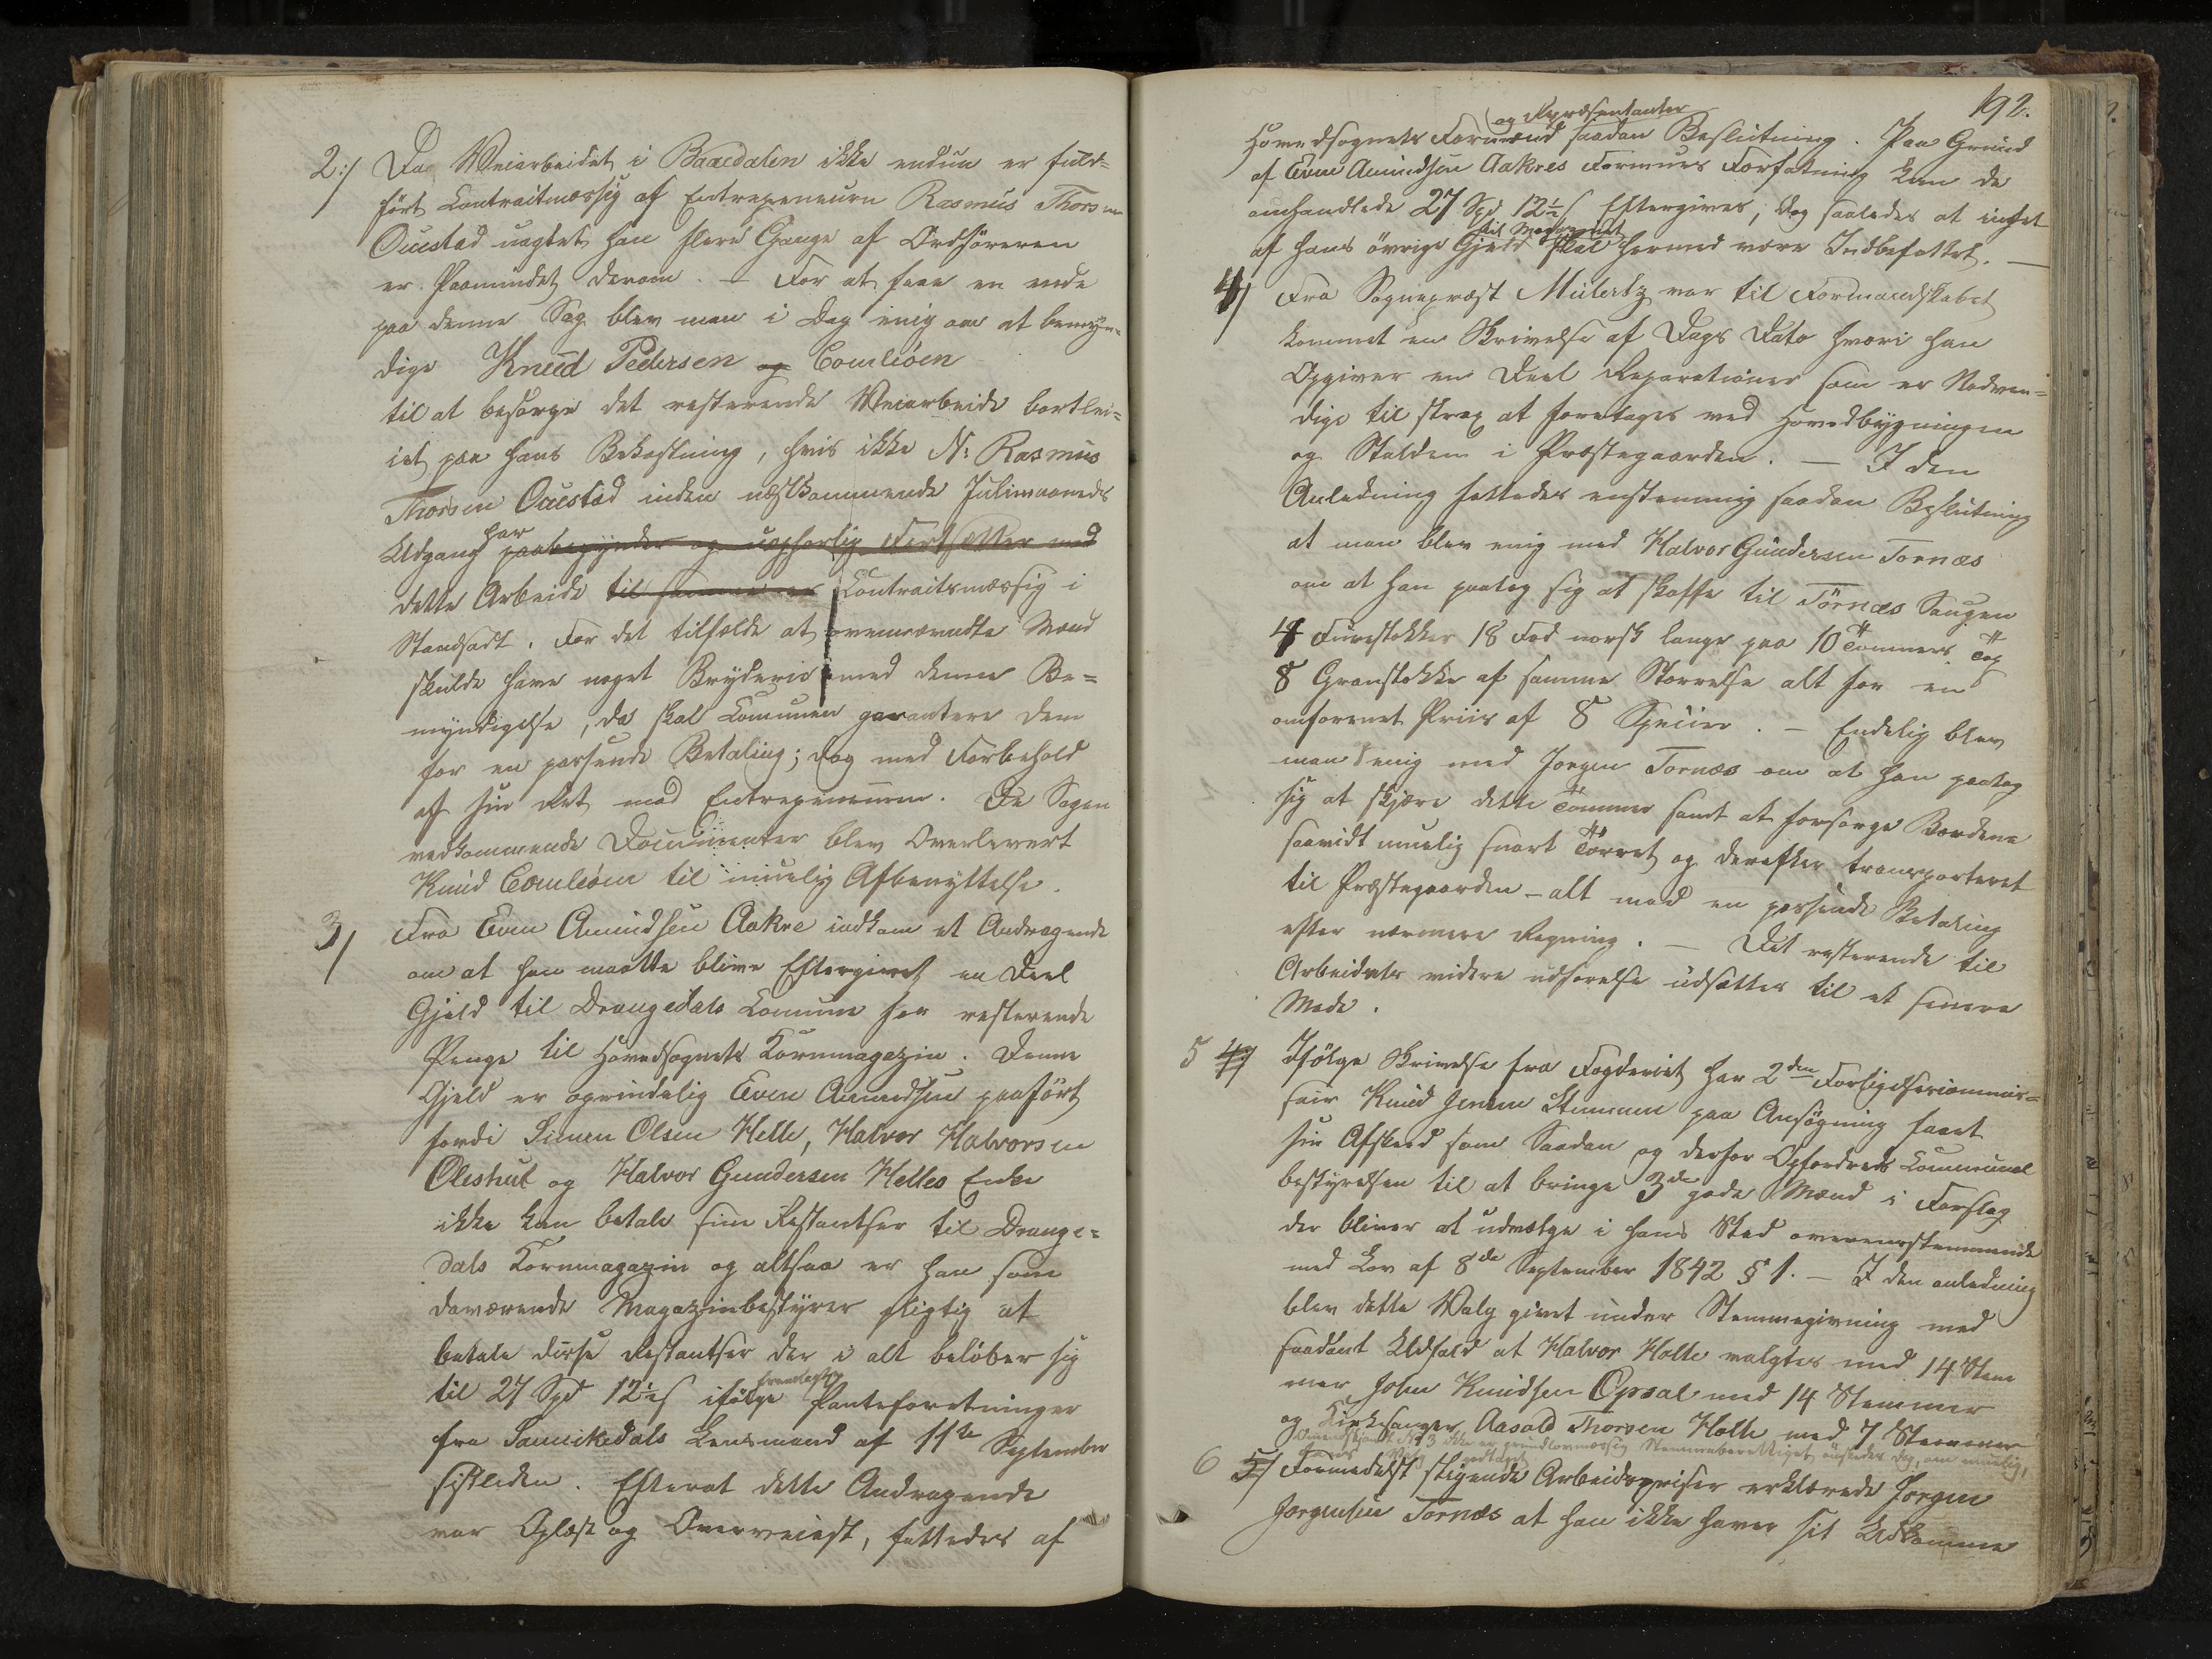 2:/ Da Veiarbeidet i Baardalen ikke endnu er fuld=
ført Contraktmæssig af Entrepeneuren Rasmus Thorsen
Ouestad uagtet han flere Gange af Ordføreren
er Paamindet derom. – For at faae en ende
paa denne Sag blev man i Dag enig om at bemyn=
dige Knud Pedersen og Eomliøen
til at besørge det resterende Veiarbeide bortlei=
iet paa hans Bekostning, hvis ikke N: Rasmus
Thorsen Ouestad inden næstkommende Julimaaneds
Udgang har paabegynder og uophørlig Fortsætter med
dette Arbeide til samme er Contraktsmæssig i
Standsadt. For det tilfælde at ovennævndte Mænd
skulde have noget Bryderie med denne Be=
myndigelse, da skal Comunen garantere dem
for en passende Betaling; dog med Forbehold
af sin Ret mod Entrepeneuren. De Sagen
vedkommende Documenter blev Overleveret
Knud Eomliøen til muelig Afbenyttelse.
3/ Fra Even Amundsen Aakre indkom et Andragende
om at han maatte blive Eftergivet en Deel
Gjeld til Drangedals Comune for resterende
Penge til Hovedsognets Kornmagazin. Denne
Gjeld er oprindelig Even Amundsen paaført
fordi Simen Olsen Helle, Halvor Halvorsen
Oleshut og Halvor Gundersen Helles Enke
ikke kan betale sine Restantser til Drange=
dals Kornmagazin og altsaa er han som
daværende Magazinbestyrer pligtig at
betale disse Restantser der i alt beløber sig
til 27 Spd 12½ s ifølge fremlagte Panteforretninger
fra Sannikedals Lensmand af 11te September
sidstleden. Efterat dette Andragende
var Oplæst og Overveiedt, fattedes af
192.
Hovedsognets Formænd og Repræsentanter saadan Beslutning. Paa Grund
af Even Amundsen Aakres Formues Forfatning kan de
omhandlede 27 Spd 12½ s Eftergives, dog saaledes at intet
af hans øvrige Gjeld til Magazinet skal hermed være Indbefattet. —
4/ Fra Sognepræst Mülertz var til Formandskabet
kommet en Skrivelse af Dags Dato hvori han
Opgiver en Deel Reparationer som er Nødven=
dige til strax at foretages ved Hovedbygningen
og Stalden i Præstegaarden. — I den
Anledning fattedes enstemmig saadan Beslutning
at man blev enig med Halvor Gundersen Tornæs
om at han paatog sig at skaffe til Törnæs Saugen
4 Furestokker 18 Fod norsk lange paa 10 Tommers Top
8 Granstokker af samme Størrelse alt for en
omforenet Priis af 8 Specier. — Endelig blev
man enig med Jørgen Tornæs om at han paatog
sig at skjære dette Tømmer samt at forsørge Bordene
saavidt muelig snart Tørret og derefter transporteret
til Præstegaarden – alt mod en passende Betaling
efter nærmere Regning. — Det resterende til
Arbeidets videre udførelse udsættes til et senere
Møde.
5 4/ Ifølge Skrivelse fra Fogderiet har 2den Forligelsescommis=
sair Knud Jensen Stemmen paa Ansøgning faaet
sin Afskeed som Saadan og derfor Opfordreds Communal
bestyrelsen til at bringe 3de gode Mænd i Forslag
der bliver at udvælge i hans Sted overensstemmende
med Lov af 8de September 1842 § 1. — I den anledning
blev dette Valg givet under Stemmegivning med
saadant Udfald at Halvor Holte valgtes med 14 Stem
mer, John Knudsen Opsal med 14 Stemmer
og Kirkesanger Aasold Thorsen Holte med 7 Stemmer
Omendskjøndt No 3 ikke er grundlovmæssig Stemmeberettiget ønskedes dog, om muelig,
6 5/ Formedelst stigende Arbeidspriser erklærede Jørgen
Jørgensen Tornæs at han ikke haver sit Udkomme